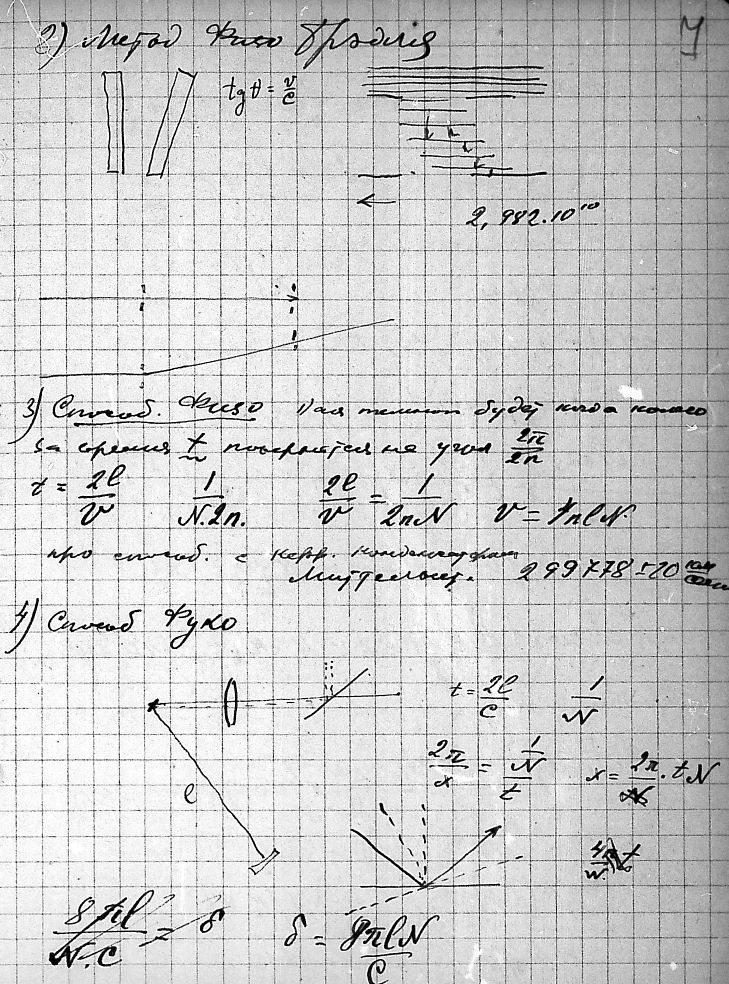 7
2) Метод Физо Брэдлія
tg θ = v/c
2,982.10¹⁰
3) Способ. Физо Вся темнот будет когда колесо
за время t повернется на угол 2π/2n
t = 2l/v 1/N.2n. 2l/v = 1/2nN v = 4nlN.
про способ. с Керр. конденсатором
Миттельшт. 299778 ± 20 км/сек
4) Способ Фуко
t = 2l/c 1/N
2π/x = 1/N/t x = 2π.tN
l
4π t
8πl/N.c = δ δ = 8πlN/c